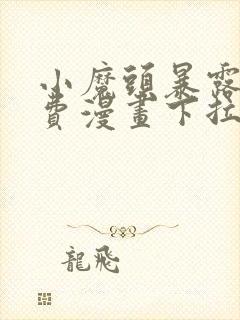 小魔頭暴露
費漫畫下拉
龍飛